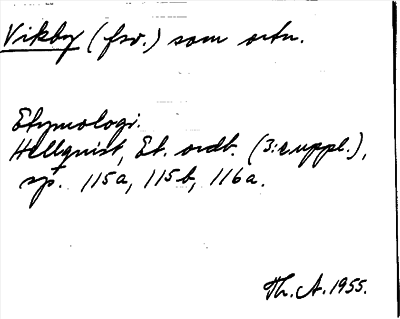 Vikby (fsv.) som ortn.
Etymologi.
Hellquist, Et. ordb. (3:e uppl.),
sp. 115a, 115b, 116a.
Th. A. 1955.